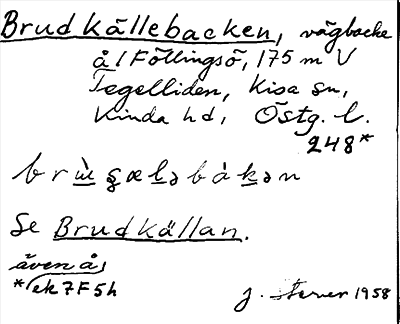 Brudkällebacken, vägbacke
å/Föllingsö, 175 m V
Tegelliden, Kisa sn,
Kinda hd, Östg. l.
248*
Se Brudkällan.
även å
* ek 7F5h
J. 1958